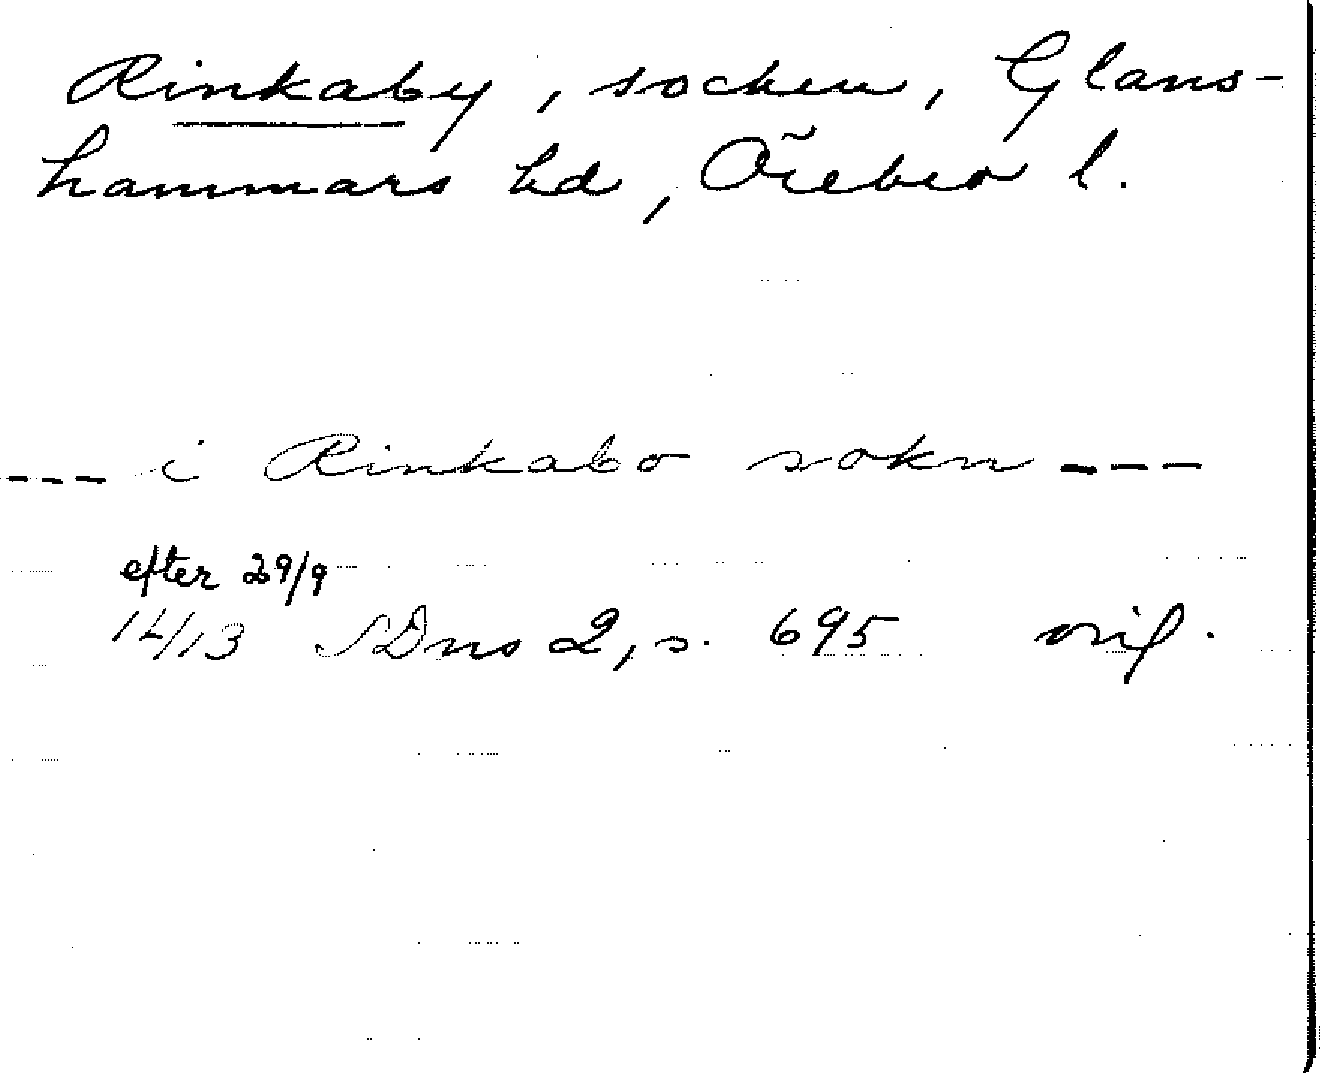 Rinkaby, socken, Glans-
hammars hd, Örebro l.
--- i Rinkabo sokn ---
efter 29/9
14/13 SDns 2, s. 695 orig.